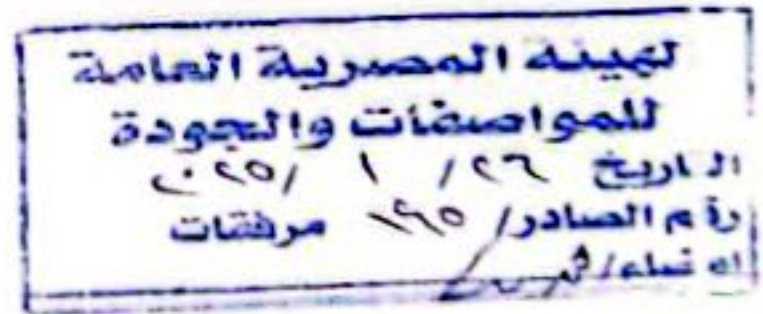 الهيئة المصرية العامة
للمواصفات والجودة
التاريخ ٢٦ / ١ / ٢٠٢٥
رقم الصادر / مرفقات
امضاء /